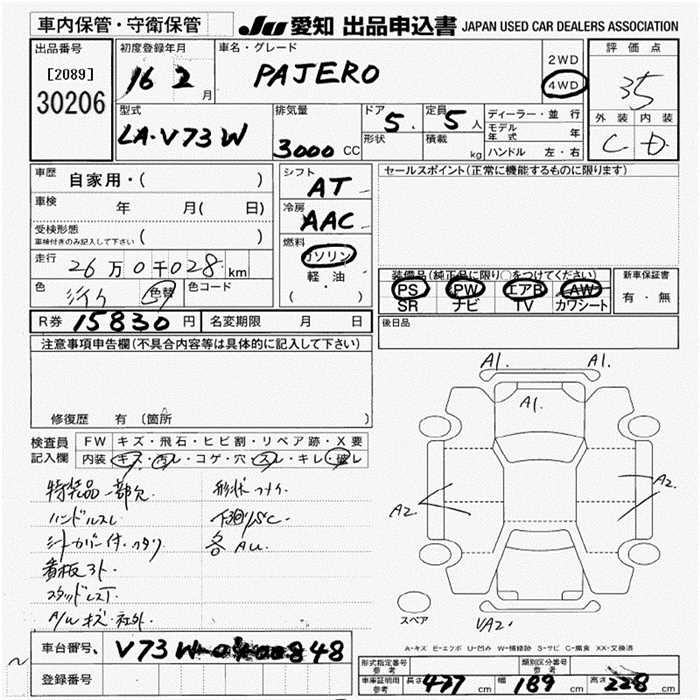 車内保管・守衛保管 JU 愛知 出品申込書 JAPAN USED CAR DEALERS ASSOCIATION
出品番号 初度登録年月 車名・グレード 2WD 評価点
[2089] 16 2 月 PAJERO 4WD 35
30206
型式 排気量 ドア 5. 定員 5 人 ディーラー・並行 外装 内装
LA-V73W 3000 CC 形状 積載 kg モデル年式 年 C D
ハンドル 左・右
車歴 自家用・( ) シフト AT セールスポイント(正常に機能するものに限ります)
車検 年 月( 日) 冷房 AAC
受検形態 ( )
車検付きのみ記入して下さい
燃料 ガソリン
走行 26万0千028 km 軽油 装備品(純正品に限り○をつけてください) 新車保証書
色 色替 色コード ( ・ ) PS PW エアB AW 有・無
SR ナビ TV カワシート
R券 15830 円 名変期限 月 日 後日品
注意事項申告欄(不具合内容等は具体的に記入して下さい)
修復歴 有 (箇所
検査員 FW キズ・飛石・ヒビ割・リペア跡・X要
記入欄 内装 キズ・汚レ・コゲ・穴・スレ・キレ・破レ
A1. A1.
A1.
A2. A2.
UA2.
特装品一部欠
ハンドルスレ
下廻リSC.
シートカバー付.
各AU.
A/Wキズ・社外.
スペア
A-キズ E-エクボ U-凹み W-補修跡 S-サビ C-腐食 XX-交換済
車台番号 V73W 848
登録番号
形式指定番号 参考 類別区分番号 参考
車庫証明用 参考 長さ 477 cm 幅 189 cm 高さ 228 cm